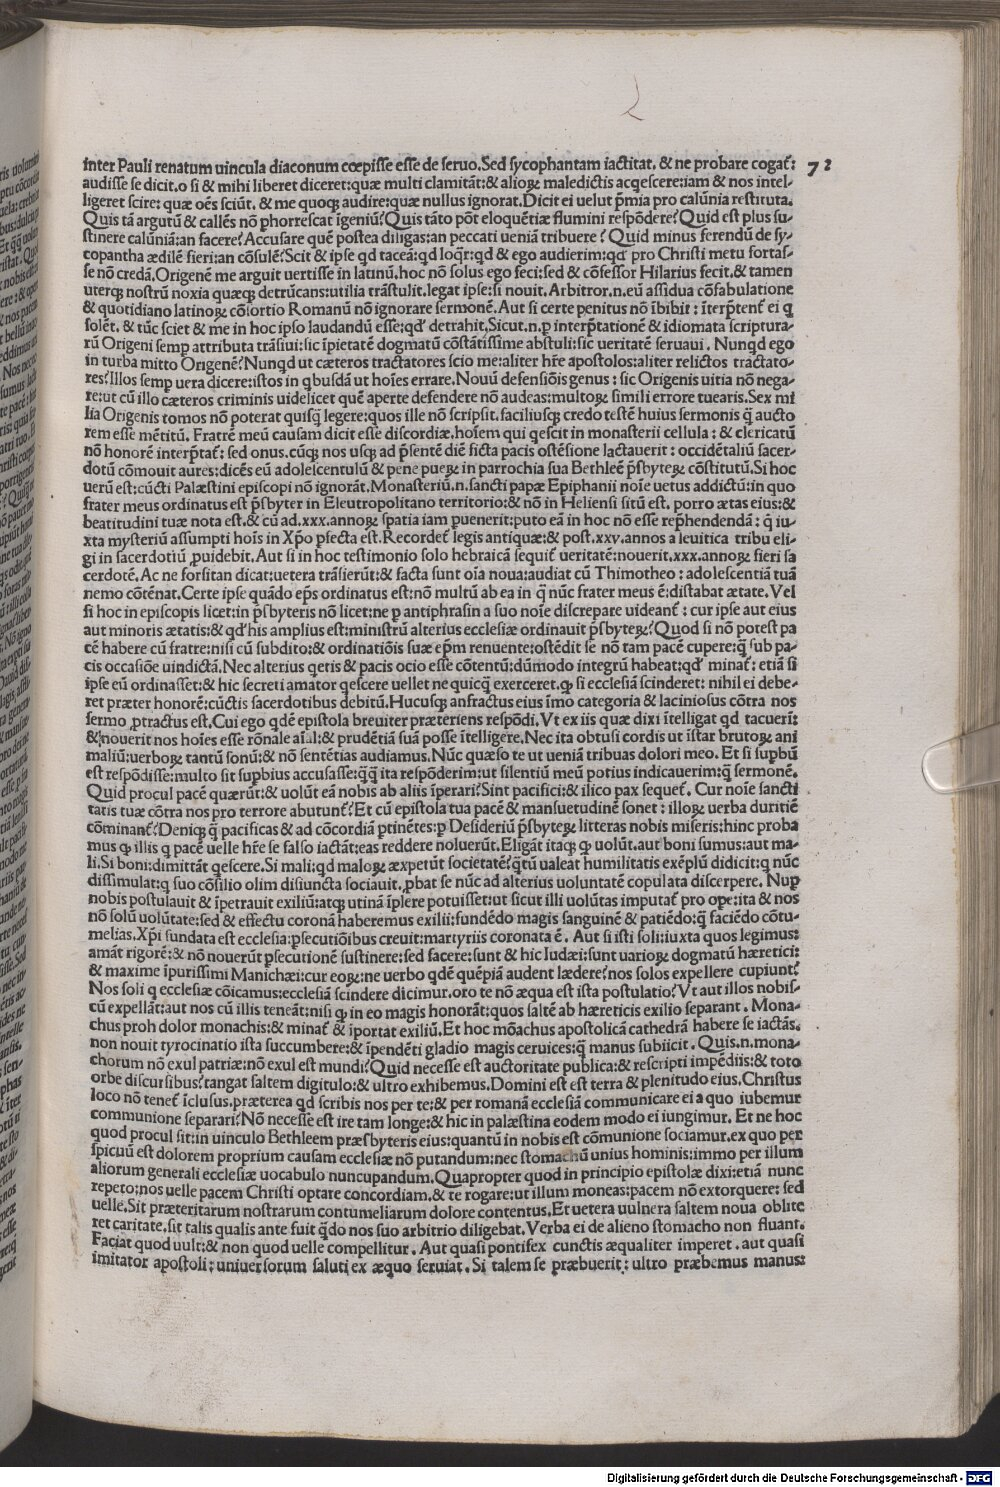 72
inter Pauli renatum uincula diaconum cœpisse esse de seruo.Sed sycophantam iactitat. & ne probare cogat᷑:
audisse se dicit.o si & mihi liberet diceret:quæ multi clamitãt:& alioꝝ maledictis acqescere:iam & nos intel-
ligeret scire: quæ oẽs sciũt. & me quoqꝫ audire:quæ nullus ignorat.Dicit ei uelut p̃mia pro calũnia restituta.
Quis tã argutũ & callẽs nõ ꝑhorrescat igeniũ?Quis tãto põt eloquẽtiæ flumini respõdere?Quid est plus su-
stinere calũniã:an facere?Accusare quẽ postea diligas:an peccati ueniã tribuere? Quid minus ferendũ de sy-
copantha ædilẽ fieri:an cõsulẽ?Scit & ipse qd taceã:qd loq̃r:qd & ego audierim:qd pro Christi metu fortas-
se nõ credã.Origenẽ me arguit uertisse in latinũ.hoc nõ solus ego feci:sed & cõfessor Hilarius fecit.& tamen
uterqꝫ nostrũ noxia quæqꝫ detrũcans:utilia trãstulit.legat ipse:si nouit.Arbitror.n.eũ assidua cõfabulatione
& quotidiano latinoꝝ cõsortio Romanũ nõ ignorare sermonẽ. Aut si certe penitus nõ ĩbibit: ĩterp̃tent᷑ ei q
solẽt. & tũc sciet & me in hoc ipso laudandũ esse:qd detrahit.Sicut.n.ꝑ interp̃tationẽ & idiomata scriptura-
rũ Origeni semꝑ attributa trãsiui:sic ĩpietatẽ dogmatũ cõstãtissime abstuli:sic ueritatẽ seruaui. Nunqd ego
in turba mitto Origenẽ?Nunqd ut cæteros tractatores scio me:aliter hr̃e apostolos:aliter relictos tractato-
res?Illos semꝑ uera dicere:istos in qbusdã ut hoĩes errare.Nouũ defensiõis genus: sic Origenis uitia nõ nega-
re:ut cũ illo cæteros criminis uidelicet quẽ aperte defendere nõ audeas:multoꝝ simili errore tuearis.Sex mi
lia Origenis tomos nõ poterat quisq̃ legere:quos ille nõ scripsit.faciliusqꝫ credo testẽ huius sermonis q̃ aucto
rem esse mẽtitũ. Fratrẽ meũ causam dicit esse discordiæ.hoĩem qui qescit in monasterii cellula: & clericatũ
nõ honorẽ interp̃tat᷑: sed onus.cũqꝫ nos usqꝫ ad p̃sentẽ diẽ ficta pacis ostẽsione lactauerit: occidẽtaliũ sacer-
dotũ cõmouit aures:dicẽs eũ adolescentulũ & pene pueꝝ in parrochia sua Bethleẽ p̃sbyteꝝ cõstitutũ.Si hoc
uerũ est:cũcti Palæstini episcopi nõ ignorãt.Monasteriũ.n.sancti papæ Epiphanii noĩe uetus addictũ:in quo
frater meus ordinatus est p̃sbyter in Eleutropolitano territorio:& nõ in Heliensi sitũ est. porro ætas eius:&
beatitudini tuæ nota est.& cũ ad.xxx.annoꝝ spatia iam puenerit:puto eã in hoc nõ esse rep̃hendendã: q̃ iu-
xta mysteriũ assumpti hoĩs in Xp̃o ꝑfecta est.Recordet᷑ legis antiquæ:& post.xxv.annos a leuitica tribu eli-
gi in sacerdotiũ ꝓuidebit.Aut si in hoc testimonio solo hebraicã sequit᷑ ueritatẽ:nouerit.xxx.annoꝝ fieri sa
cerdotẽ. Ac ne forsitan dicat:uetera trãsierũt:& facta sunt oĩa noua:audiat cũ Thimotheo: adolescentiã tuã
nemo cõtẽnat.Certe ipse quãdo ep̃s ordinatus est:nõ multũ ab ea in q̃ nũc frater meus ẽ:distabat ætate. Vel
si hoc in episcopis licet:in p̃sbyteris nõ licet:ne ꝑ antiphrasin a suo noĩe discrepare uideant᷑: cur ipse aut eius
aut minoris ætatis:& qd his amplius est:ministrũ alterius ecclesiæ ordinauit p̃sbyteꝝ?Quod si nõ potest pa
cẽ habere cũ fratre:nisi cũ subdito:& ordinatiõis suæ ep̃m renuente:ostẽdit se nõ tam pacẽ cupere:q̃ sub pa-
cis occasiõe uindictã.Nec alterius qetis & pacis ocio esse cõtentũ:dũmodo integrũ habeat:qd minat᷑: etiã si
ipse eũ ordinasset:& hic secreti amator qescere uellet ne quicq̃ exerceret.ꝙ si ecclesiã scinderet: nihil ei debe-
ret præter honorẽ:cũctis sacerdotibus debitũ.Hucusqꝫ anfractus eius ĩmo categoria & laciniosus cõtra nos
sermo ꝓtractus est.Cui ego qdẽ epistola breuiter præteriens respõdi.Vt ex iis quæ dixi ĩtelligat qd tacueri᷑:
& nouerit nos hoĩes esse rõnale aĩal:& prudẽtiã suã posse ĩtelligere.Nec ita obtusi cordis ut ĩstar brutoꝝ ani
maliũ:uerboꝝ tantũ sonũ:& nõ sentẽtias audiamus.Nũc quæso te ut ueniã tribuas dolori meo. Et si supbũ
est respõdisse:multo sit supbius accusasse:q̃q̃ ita respõderim:ut silentiũ meũ potius indicauerim:q̃ sermonẽ.
Quid procul pacẽ quærũt:& uolũt eã nobis ab aliis ĩperari?Sint pacifici:& ilico pax sequet᷑. Cur noĩe sancti
tatis tuæ cõtra nos pro terrore abutunt᷑?Et cũ epistola tua pacẽ & mansuetudinẽ sonet: illoꝝ uerba duritiẽ
cõminant᷑?Deniqꝫ q̃ pacificas & ad cõcordiã ptinẽtes:ꝑ Desideriũ p̃sbyteꝝ litteras nobis miseris:hinc proba
mus ꝙ illis q pacẽ uelle hr̃e se falso iactãt:eas reddere noluerũt.Eligãt itaqꝫ q̃ uolũt.aut boni sumus:aut ma-
li.Si boni:dimittãt qescere.Si mali:qd maloꝝ æxpetũt societatẽ?q̃tũ ualeat humilitatis exẽplũ didicit:q nũc
dissimulat:q suo cõsilio olim disiuncta sociauit.ꝓbat se nũc ad alterius uoluntatẽ copulata discerpere. Nuꝑ
nobis postulauit & ĩpetrauit exiliũ:atqꝫ utinã ĩplere potuisset:ut sicut illi uolũtas imputat᷑ pro ope:ita & nos
nõ solũ uolũtate:sed & effectu coronã haberemus exilii:fundẽdo magis sanguinẽ & patiẽdo:q̃ faciẽdo cõtu-
melias.Xp̃i fundata est ecclesia:psecutiõibus creuit:martyriis coronata ẽ. Aut si isti soli:iuxta quos legimus:
amãt rigorẽ:& nõ nouerũt ꝑsecutionẽ sustinere:sed facere:sunt & hic Iudæi:sunt uarioꝝ dogmatũ hæretici:
& maxime ĩpurissimi Manichæi:cur eoꝝ:ne uerbo qdẽ quẽpiã audent lædere?nos solos expellere cupiunt?
Nos soli q ecclesiæ cõicamus:ecclesiã scindere dicimur.oro te nõ æqua est ista postulatio?Vt aut illos nobis-
cũ expellãt:aut nos cũ illis teneãt:nisi ꝙ in eo magis honorãt:quos saltẽ ab hæreticis exilio separant. Mona-
chus proh dolor monachis:& minat᷑ & ĩportat exiliũ.Et hoc mõachus apostolicã cathedrã habere se iactãs.
non nouit tyrocinatio ista succumbere:& ĩpendẽti gladio magis ceruices:q̃ manus subiicit. Quis.n.mona-
chorum nõ exul patriæ:nõ exul est mundi?Quid necesse est auctoritate publica:& rescripti impẽdiis:& toto
orbe discursibus?tangat saltem digitulo:& ultro exhibemus.Domini est est terra & plenitudo eius.Christus
loco nõ tenet᷑ ĩclusus.præterea qd scribis nos per te:& per romanã ecclesiã communicare ei a quo iubemur
communione separari?Nõ necesse est ire tam longe:& hic in palæstina eodem modo ei iungimur. Et ne hoc
quod procul sit:in uinculo Bethleem præsbyteris eius:quantũ in nobis est cõmunione sociamur.ex quo per
spicuũ est dolorem proprium causam ecclesiæ nõ putandum:nec stomachũ unius hominis:immo per illum
aliorum generali ecclesiæ uocabulo nuncupandum.Quapropter quod in principio epistolæ dixi:etiã nunc
repeto:nos uelle pacem Christi optare concordiam.& te rogare:ut illum moneas:pacem nõ extorquere: sed
uelle.Sit præteritarum nostrarum contumeliarum dolore contentus.Et uetera uulnera saltem noua oblite
ret caritate.sit talis qualis ante fuit q̃do nos suo arbitrio diligebat. Verba ei de alieno stomacho non fluant.
Faciat quod uult:& non quod uelle compellitur. Aut quasi pontifex cunctis æqualiter imperet.aut quasi
imitator apostoli: uniuersorum saluti ex æquo seruiat.Si talem se præbuerit: ultro præbemus manus:
Digitalisierung gefördert durch die Deutsche Forschungsgemeinschaft - DFG